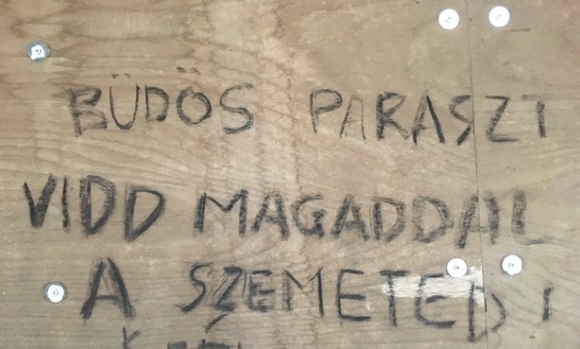 BÜDÖS PARASZT
VIDD MAGADDAL
A SZEMETED!